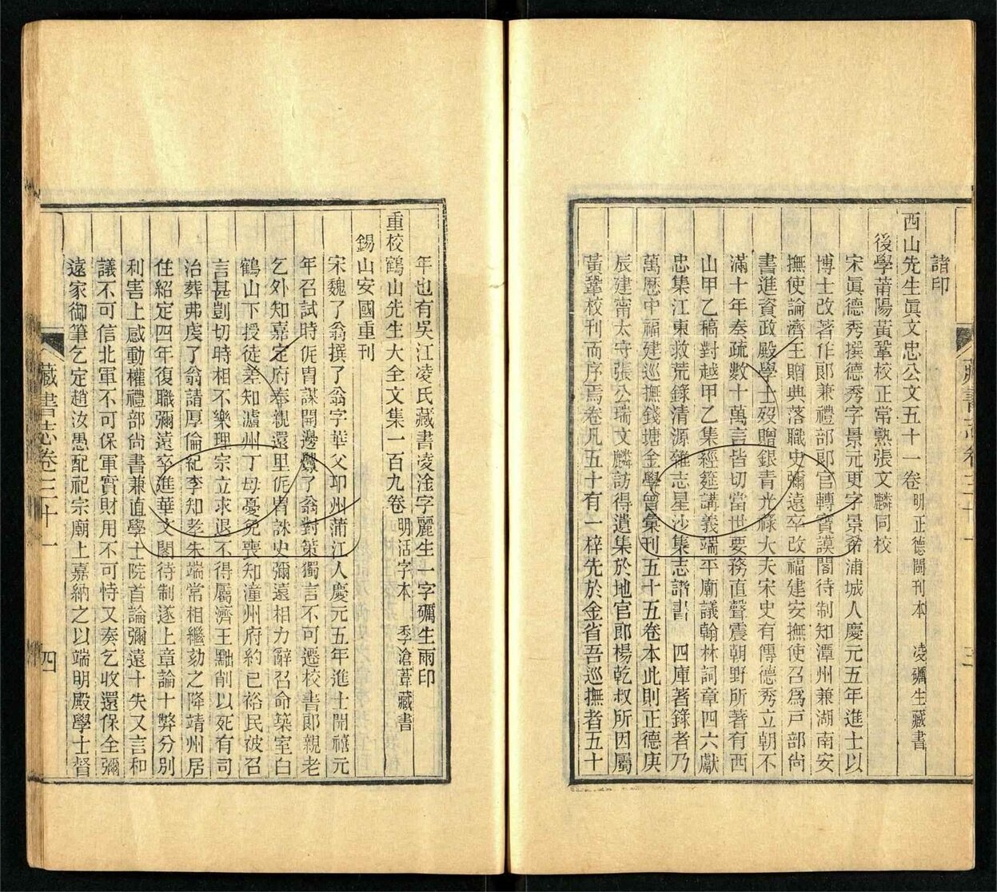 諸印
西山先生眞文忠公文五十一卷 明正德閩刊本 凌礪生藏書
後學莆陽黃鞏校正常熟張文麟同校
宋眞德秀撰德秀字景元更字景希浦城人慶元五年進士以
博士改著作郎兼禮部郎官轉寶謨閣待制知潭州兼湖南安
撫使論濟王贈典落職史彌遠卒改福建安撫使召爲戶部尚
書進資政殿學士歿贈銀青光祿大夫宋史有傳德秀立朝不
滿十年奏疏數十萬言皆切當世要務直聲震朝野所著有西
山甲乙稿對越甲乙集經筵講義端平廟議翰林詞章四六獻
忠集江東救荒錄清源雜志星沙集志諸書 四庫著錄者乃
萬歷中福建巡撫錢塘金學曾彙刊五十五卷本此則正德庚
辰建甯太守張公瑞文麟訪得遺集於地官郎楊乾叔所因屬
黃鞏校刊而序焉卷凡五十有一梓先於金省吾巡撫者五十
藏書志卷三十一 三
年也有吳江凌氏藏書凌淦字麗生一字礪生兩印
重校鶴山先生大全文集一百九卷 明活字本 季滄葦藏書
錫山安國重刊
宋魏了翁撰了翁字華父邛州蒲江人慶元五年進士開禧元
年召試時侂冑謀開邊釁了翁對策獨言不可遷校書郎親老
乞外知嘉定府奉親還里侂冑誅史彌遠相力辭召命築室白
鶴山下授徒差知瀘州丁母憂免喪知潼州府約己裕民被召
言甚剴切時相不樂理宗立求退不得屬濟王黜削以死有司
治葬弗虔了翁請厚倫紀李知孝朱端常相繼劾之降靖州居
住紹定四年復職彌遠卒進華文閣待制遂上章論十弊分別
利害上感動權禮部尚書兼直學士院首論彌遠十失又言和
議不可信北軍不可保軍實財用不可恃又奏乞收還保全彌
遠家御筆乞定趙汝愚配祀宗廟上嘉納之以端明殿學士督
藏書志卷三十一 四